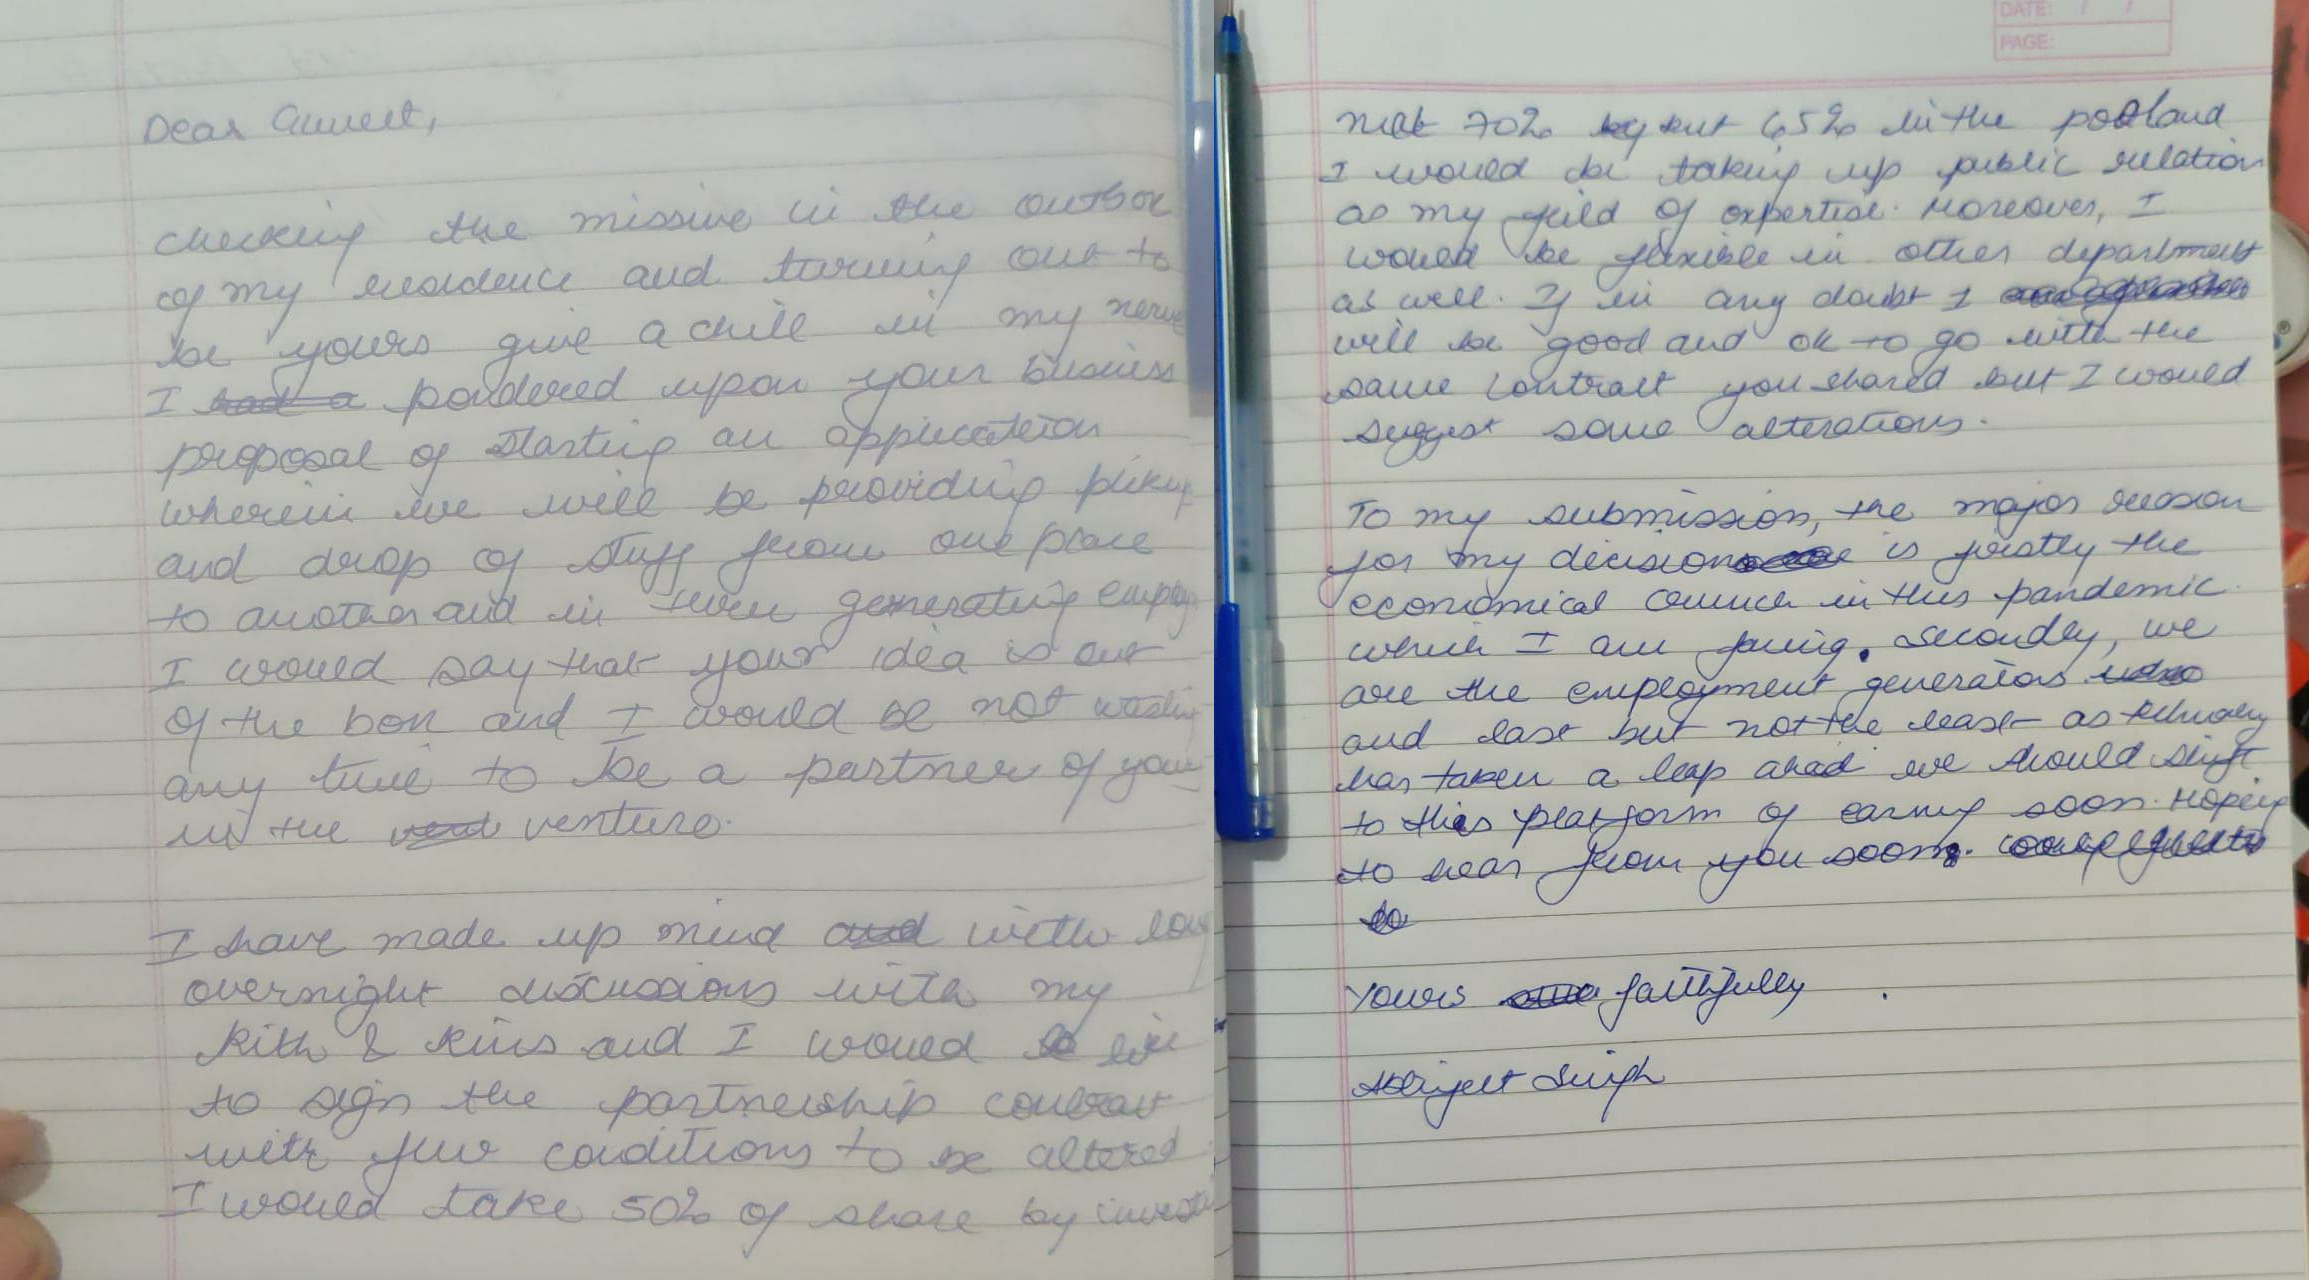 Dear
checking the missive in the outbox
of my residence and turning out to
be yours give a chill in my nerve
I pondered upon your business
proposal of starting an application
wherein we will be providing pickup
and drop of stuff from one place
to another and in turn generating
I would say that your idea is out
of the box and I would be not wasting
any time to be a partner of your
in the venture.
I have made up mind with long
overnight discussions with my
kith & kins and I would like
to sign the partnership contract
with few conditions to be altered
I would take 50% of share by
not 70% but 65% in the
I would be taking up public relation
as my feild of expertise. Moreover, I
would be flexible in other department
as well. If in any doubt I
will be good and ok to go with the
same contract you shared but I would
suggest some alterations.
To my submission, the major reason
for my decision is firstly the
economical crunch in this pandemic
which I am facing. Secondly, we
are the employment generators
and last but not the least as
has taken a leap ahead we should shift
to this platform of earning soon. Hoping
to hear from you soon.
Yours faithfully
Abhijeet Singh
DATE: / /
PAGE: